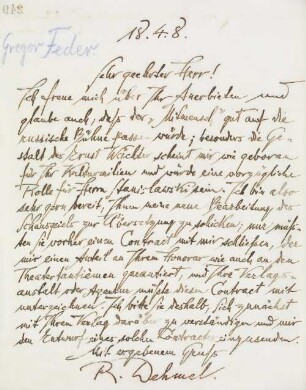 18.4.8.
Gregor Feder
Sehr geehrter Herr!
Ich freue mich über Ihr Anerbieten und
glaube auch, daß der „Mitmensch" gut auf die
russische Bühne passen würde; besonders die Ge-
stalt des Ernst Wächter scheint mir wie geboren
für Ihr und würde eine vorzügliche
Rolle für Herrn sein. Ich bin also
sehr gern bereit, Ihnen meine neue Bearbeitung des
Schauspiels zur Übersetzung zu schicken; nur müß-
ten Sie vorher einen Contract mit mir schließen, der
mir einen Anteil an Ihrem Honorar wie auch an den
Theatertantiemen garantiert, und Ihre Verlags-
anstalt oder Agentur müßte diesen Contract mit
unterzeichnen. Ich bitte Sie deshalb, sich zunächst
mit Ihrem Verlag darüber zu verständigen und mir
den Entwurf eines solchen Contracts einzusenden.
Mit ergebenem Gruß
R. Dehmel.